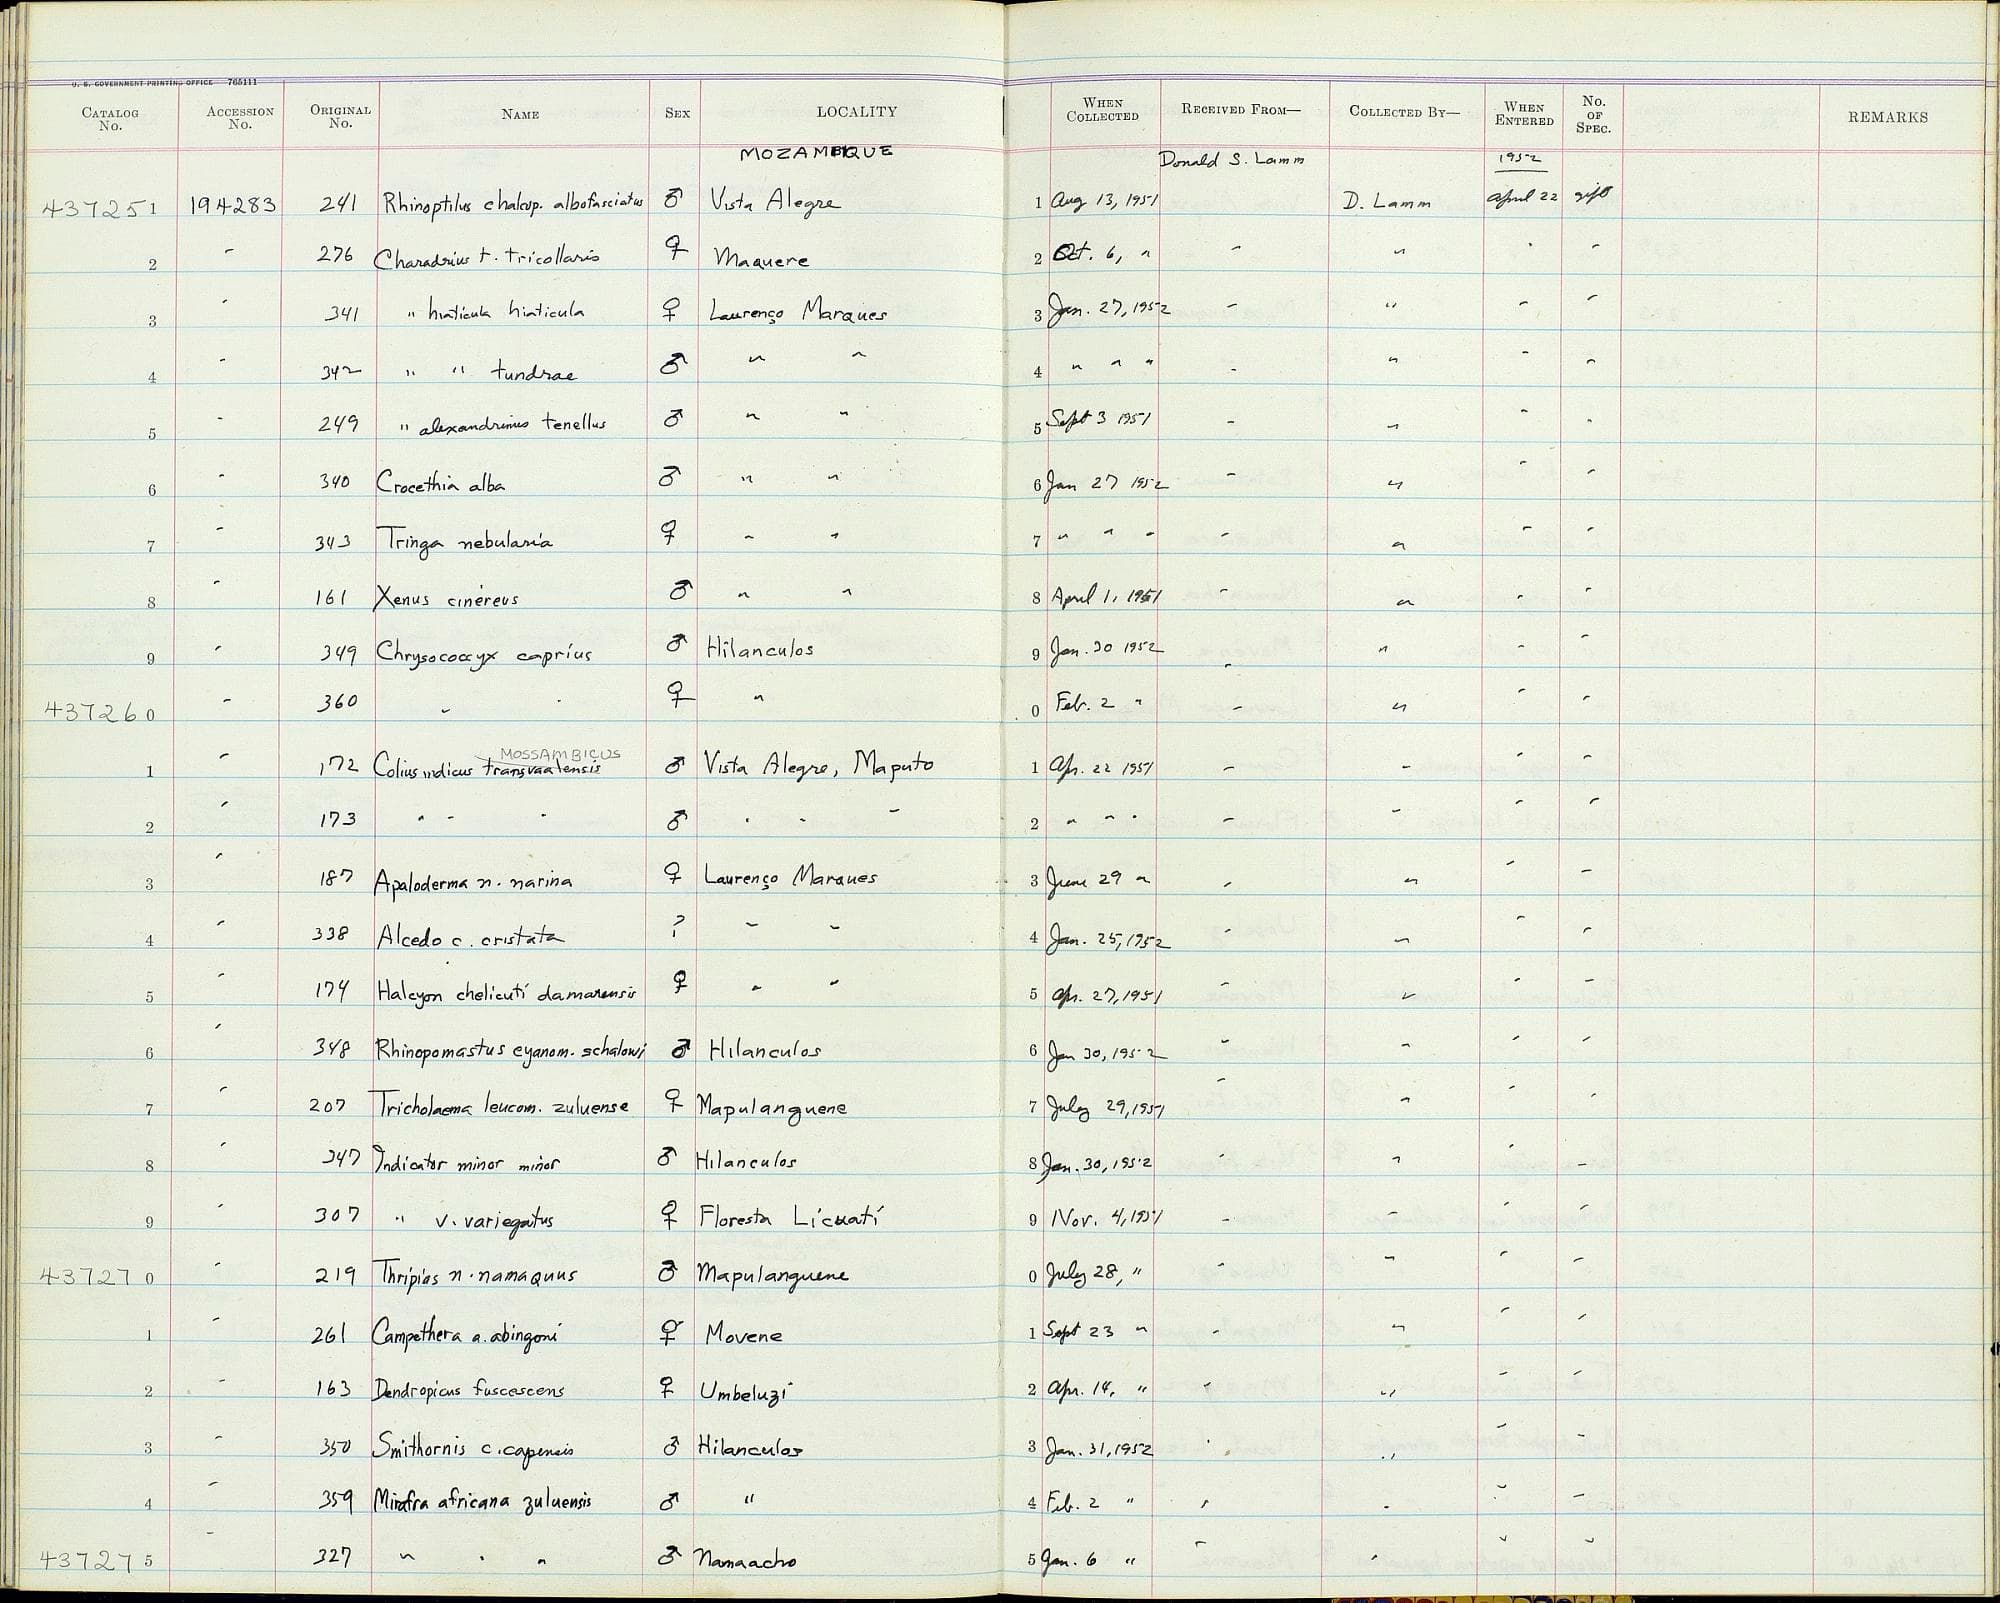 U. S. GOVERNMENT PRINTING OFFICE 765111
CATALOG No. ACCESSION No. ORIGINAL No. NAME SEX LOCALITY WHEN COLLECTED RECEIVED FROM— COLLECTED BY— WHEN ENTERED No. OF SPEC. REMARKS
MOZAMBIQUE Donald S. Lamm 1952
437251 194283 241 Rhinoptilus chalcop. albofasciatus ♂ Vista Alegre 1 Aug 13, 1951 D. Lamm April 22 gift
2 " 276 Charadrius t. tricollaris ♀ Maquere 2 Oct. 6, " " " " "
3 " 341 " hiaticula hiaticula ♀ Laurenço Marques 3 Jan. 27, 1952 " " " "
4 " 342 " " tundrae ♂ " " 4 " " " " " " "
5 " 249 " alexandrinus tenellus ♂ " " 5 Sept 3 1951 " " " "
6 " 340 Crocethia alba ♂ " " 6 Jan 27 1952 " " " "
7 " 343 Tringa nebularia ♀ " " 7 " " " " " " "
8 " 161 Xenus cinereus ♂ " " 8 April 1, 1951 " " " "
9 " 349 Chrysococcyx caprius ♂ Hilanculos 9 Jan. 30 1952 " " " "
437260 " 360 " " ♀ " 0 Feb. 2 " " " " "
MOSSAMBICUS
1 " 172 Colius indicus transvaalensis ♂ Vista Alegre, Maputo 1 Apr. 22 1951 " " " "
2 " 173 " " " ♂ " " " 2 " " " " " " "
3 " 187 Apaloderma n. narina ♀ Laurenço Marques 3 June 29 " " " " "
4 " 338 Alcedo c. cristata ? " " 4 Jan. 25, 1952 " " " "
5 " 174 Halcyon chelicuti damarensis ♀ " " 5 Apr. 27, 1951 " " " "
6 " 348 Rhinopomastus cyanom. schalowi ♂ Hilanculos 6 Jan 30, 1952 " " " "
7 " 207 Tricholaema leucom. zuluense ♀ Mapulanguene 7 July 29, 1951 " " " "
8 " 347 Indicator minor minor ♂ Hilanculos 8 Jan. 30, 1952 " " " "
9 " 307 " v. variegatus ♀ Floresta Licuati 9 Nov. 4, 1951 " " " "
437270 " 219 Thripias n. namaquus ♂ Mapulanguene 0 July 28, " " " " "
1 " 261 Campethera a. abingoni ♀ Movene 1 Sept 23 " " " " "
2 " 163 Dendropicus fuscescens ♀ Umbeluzi 2 Apr. 14, " " " " "
3 " 350 Smithornis c. capensis ♂ Hilanculos 3 Jan. 31, 1952 " " " "
4 " 359 Mirafra africana zuluensis ♂ " 4 Feb. 2 " " " " "
437275 " 327 " " " ♂ Namaacho 5 Jan. 6 " " " " "